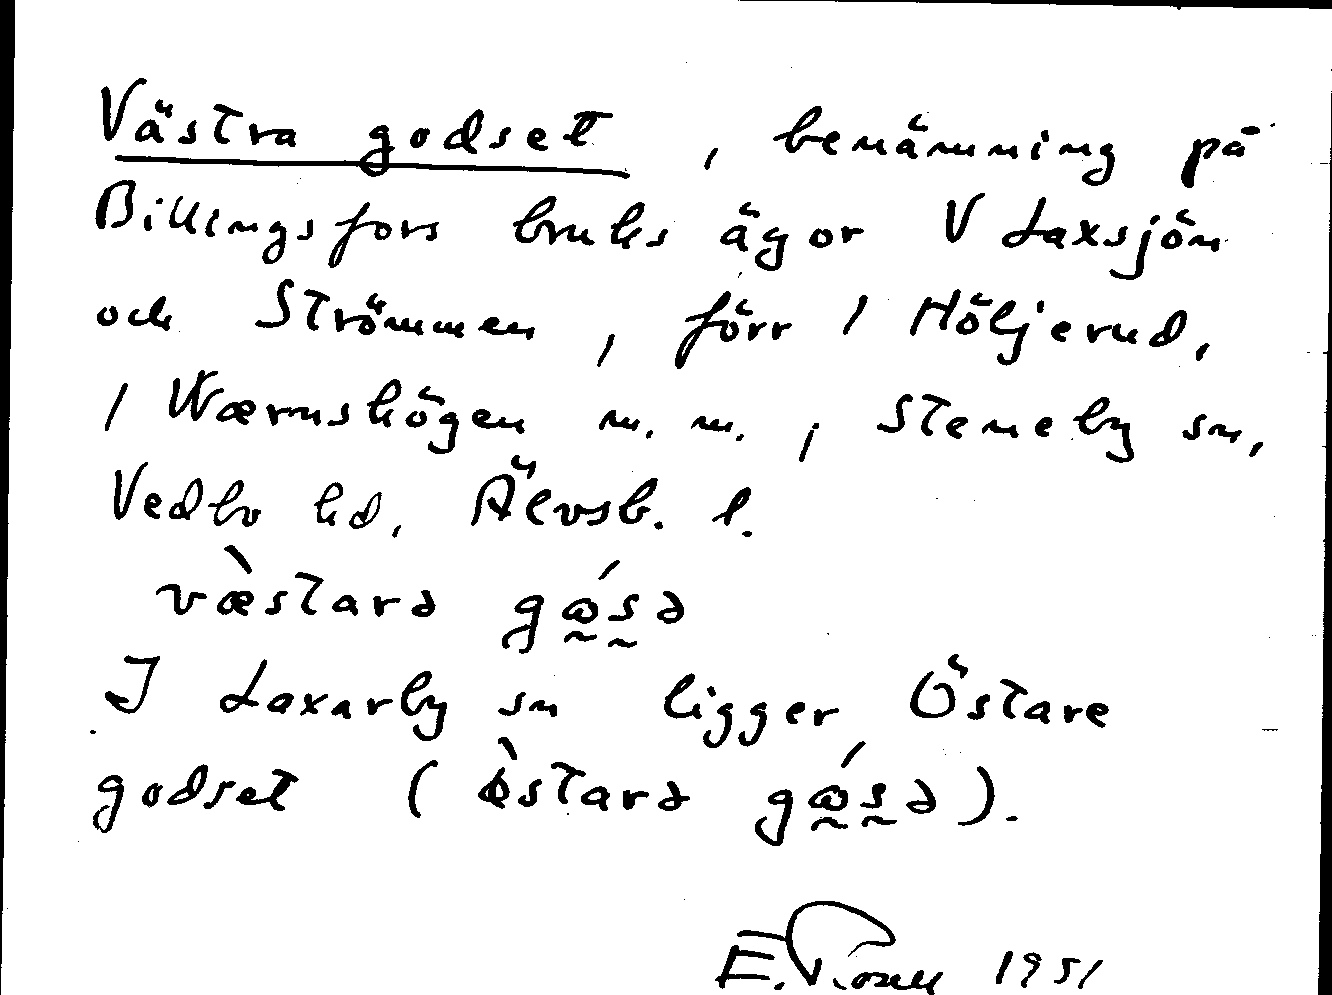 Västra godset, benämning på
Billingsfors bruks ägor V Laxsjön
och Strömmen, förr / Höljerud,
/ Wærnshögen m. m., Steneby sn,
Vedbo hd, Älvsb. l.
væ̀starə gɷ́sə
I Laxarby sn ligger Östare
godset (ɵ̀starə gɷ́sə).
E. 1951